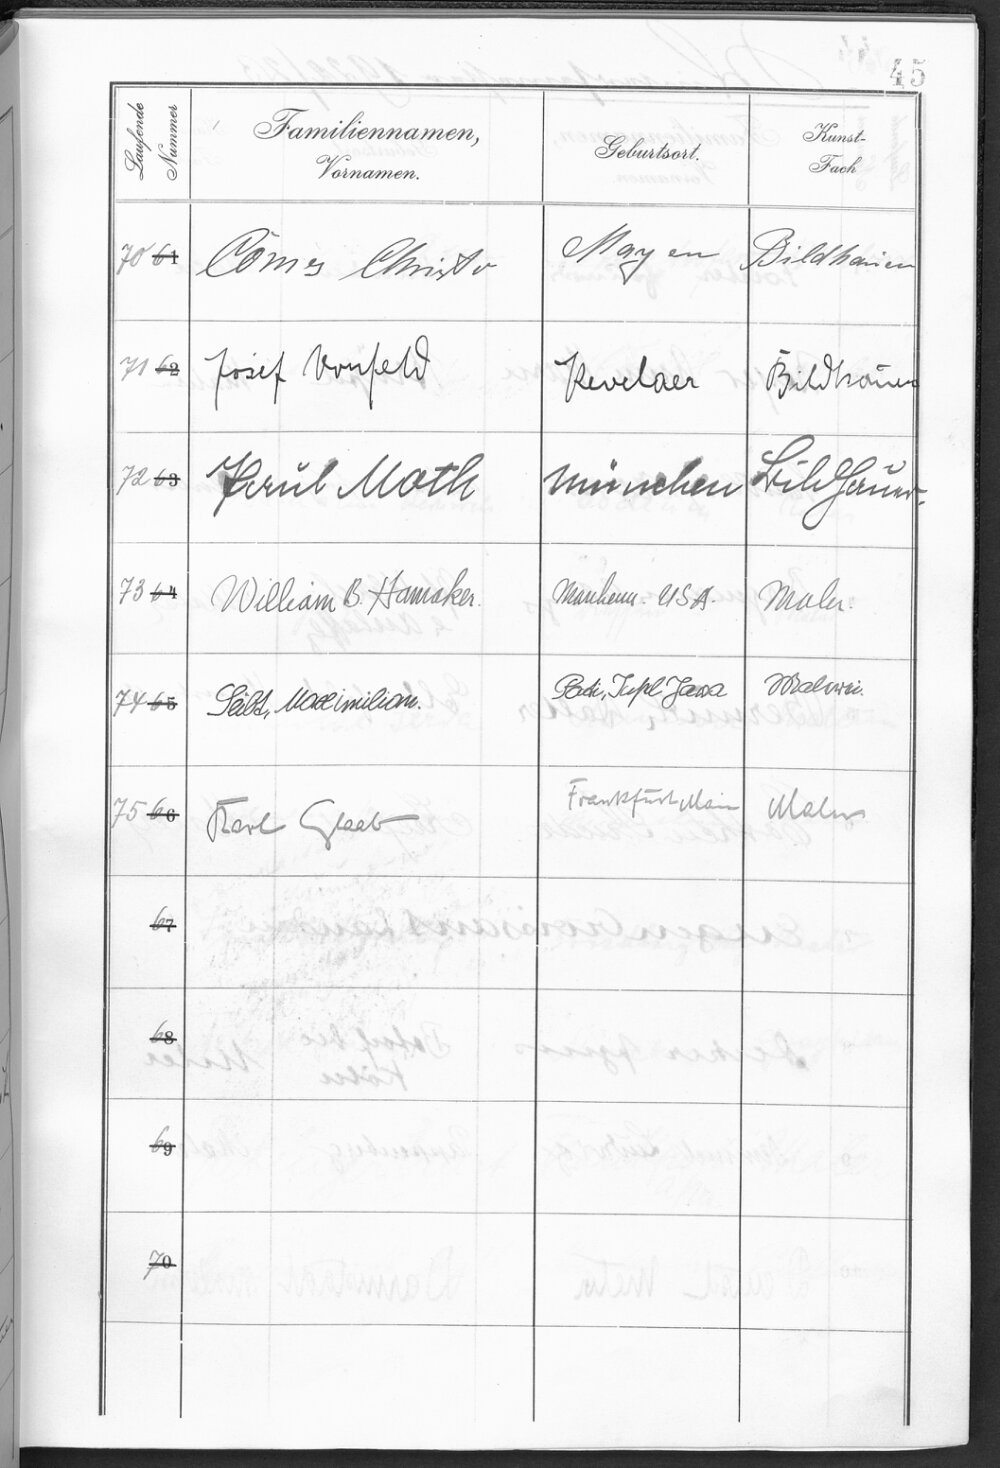 45
Laufende Nummer
Familiennamen, Vornamen.
Geburtsort.
Kunst-Fach
70 61 Cömes Christ Mayen Bildhauer
71 62 Josef Vonfeld Kevelaer Bildhauer
72 63 Moth München Bildhauer
73 64 William B. Hamaker. USA. Maler.
74 65 Seibt, Maximilian. Pati, Java Malerei.
75 66 Karl Glaab Frankfurt Main Maler
67
68
69
70